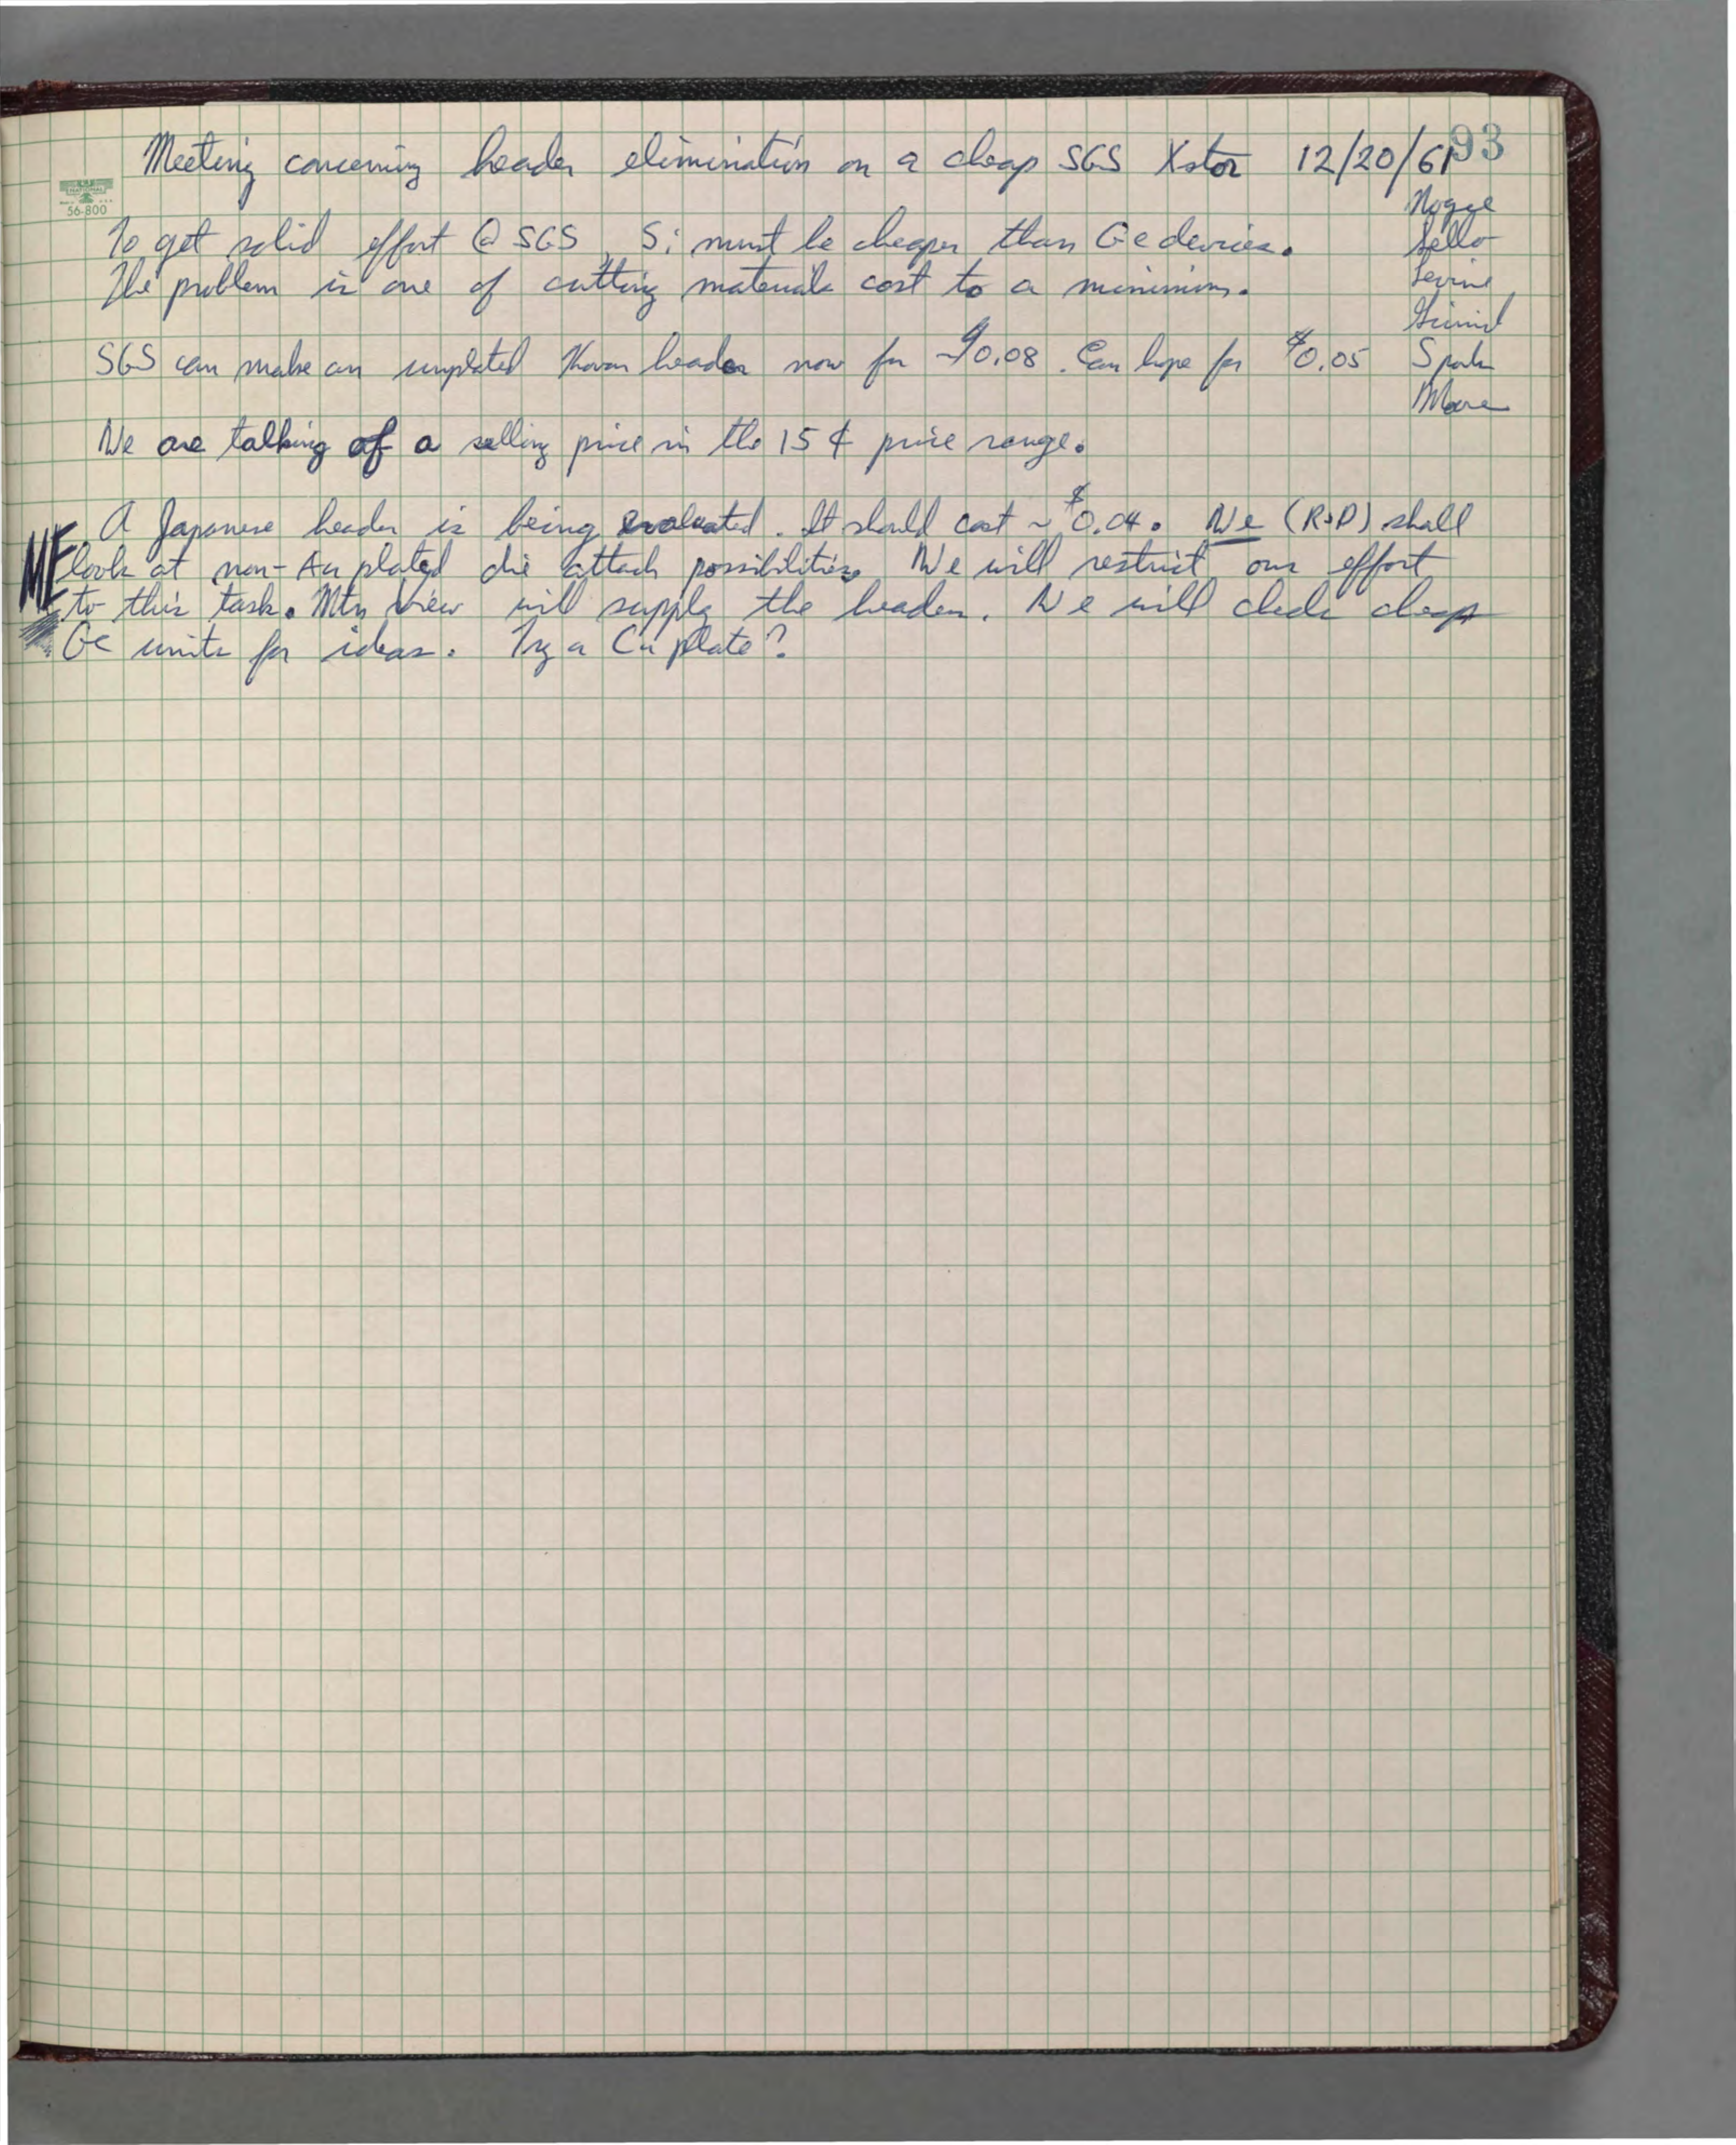 93
Meeting concerning header elimination on a cheap SGS Xstor 12/20/61
NATIONAL
56-800
Noyce
To get solid effort @ SGS, Si must be cheaper than Ge devices.
Sello
The problem is one of cutting materials cost to a minimum.
Levine
Grinich
SGS can make an unplated Kovar header now for ~$0.08. Can hope for $0.05
Spork
Moore
We are talking of a selling price in the 15 ¢ price range.
A Japanese header is being evaluated. It should cost ~ $0.04. We (R&D) shall
look at non-Au plated die attach possibilities. We will restrict our effort
to this task. Mtn View will supply the header. We will check cheap
Ge units for ideas. Try a Cu plate?